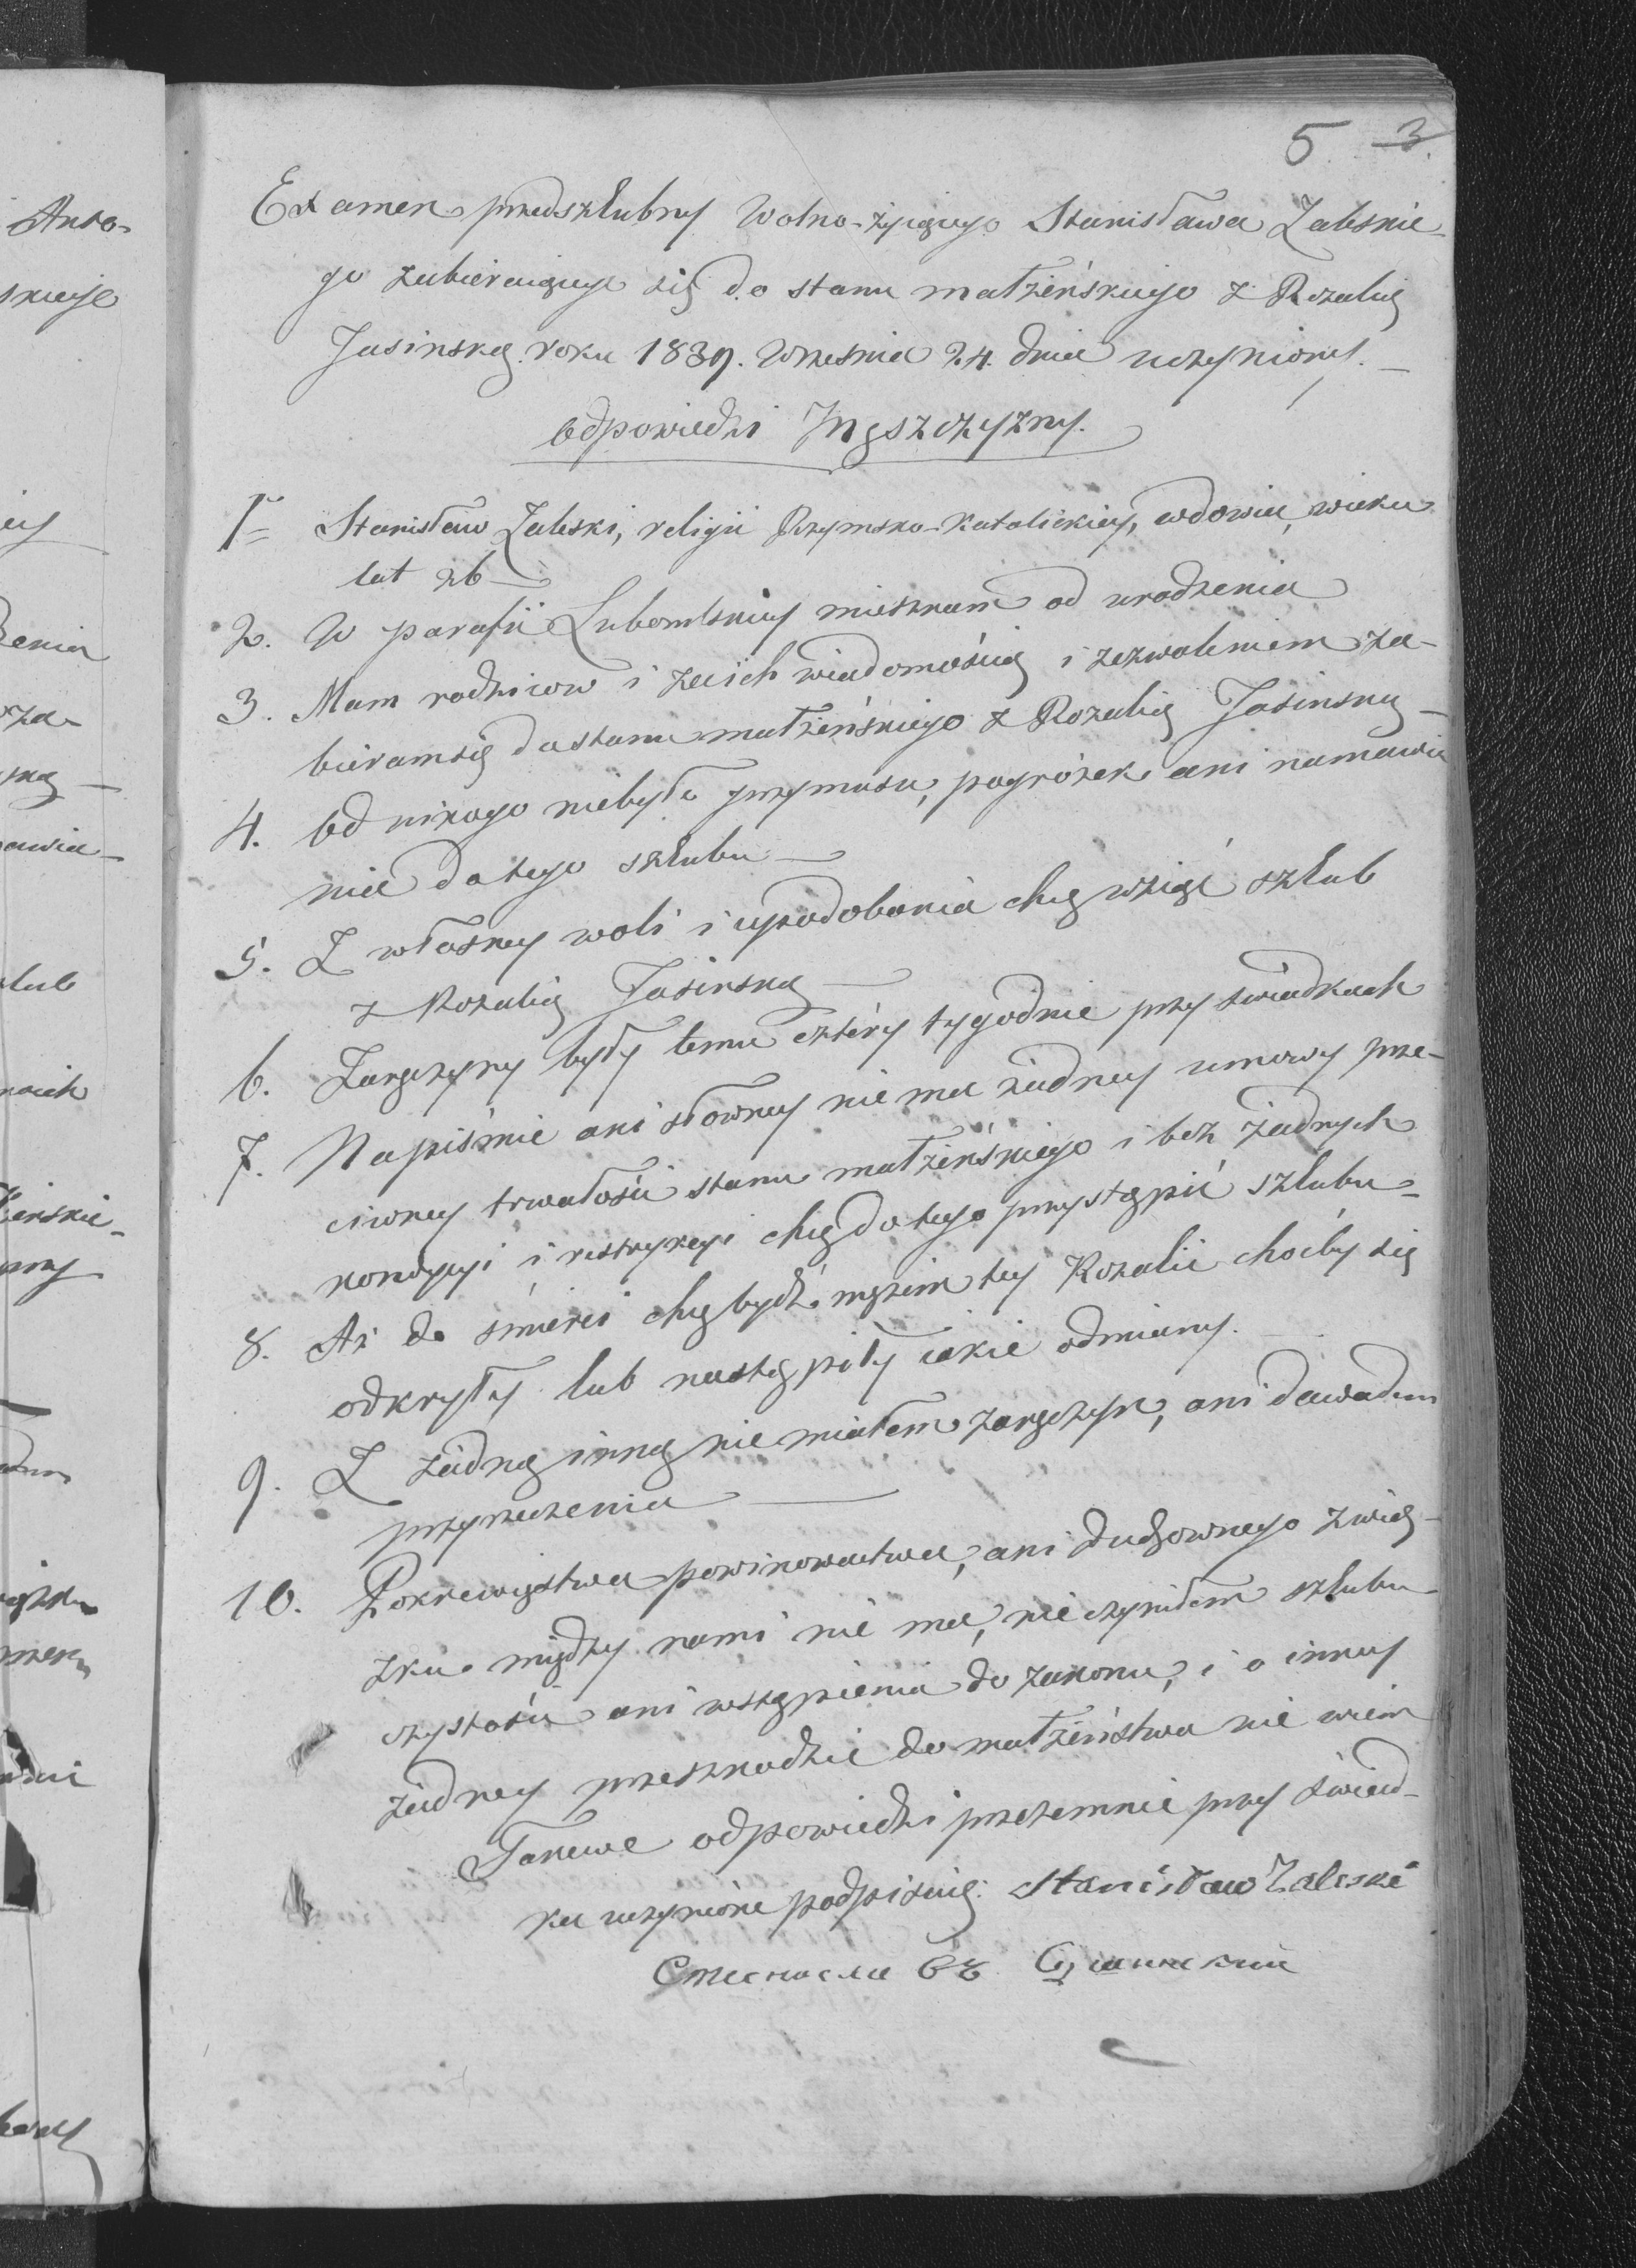 5 3.
Examen przedszlubny Wolno-żyiącego Stanisława Zaleskie-
go zabieraiącego się do stanu małżeńskiego z Rozalią
Jasinską roku 1839. Września 24. dnia uczyniony.
Odpowiedzi Męszczyzny.
1. Stanisław Zaleski, religii Rzymsko-Katolickiey, wdowiec, wieku
lat 26
2. W parafii Lubomlskiey mieszkam od urodzenia
3. Mam rodzicow i za ich wiadomością i zezwoleniem za-
bieram się do stanu małżeńskiego z Rozalią Jasinską
4. Od nikogo niebyło przymusu, pogróżek ani namawia
nia do tego szlubu
5. Z własney woli i upodobania chcę wziąć szlub
z Rozalią Jasinską
6. Zaręczyny były temu cztéry tygodnie przy świadkach
7. Na piśmie ani słowney nie ma żadney umowy prze-
ciwney trwałości stanu małżeńskiego i bez żadnych
kondycyi i restrykcyi chcę do tego przystąpić szlubu
8. Aż do śmierci chcę bydź mężem tey Rozalii choćby się
odkryły lub nastąpiły iakie odmiany.
9. Z żadną inną nie miałem zaręczyn, ani dawałem
przyrzeczenia
10. Pokrewięstwa powinowactwa, ani duchownego zwią-
zku między nami nie ma, nie czyniłem szlubu
czystości ani wstąpienia do zakonu, i o inney
żadney przeszkodzie do małżeństwa nie wiem
Takowe odpowiedzi przezemnie przy świad-
ku uczynione podpisuię. Stanisław Zaleski